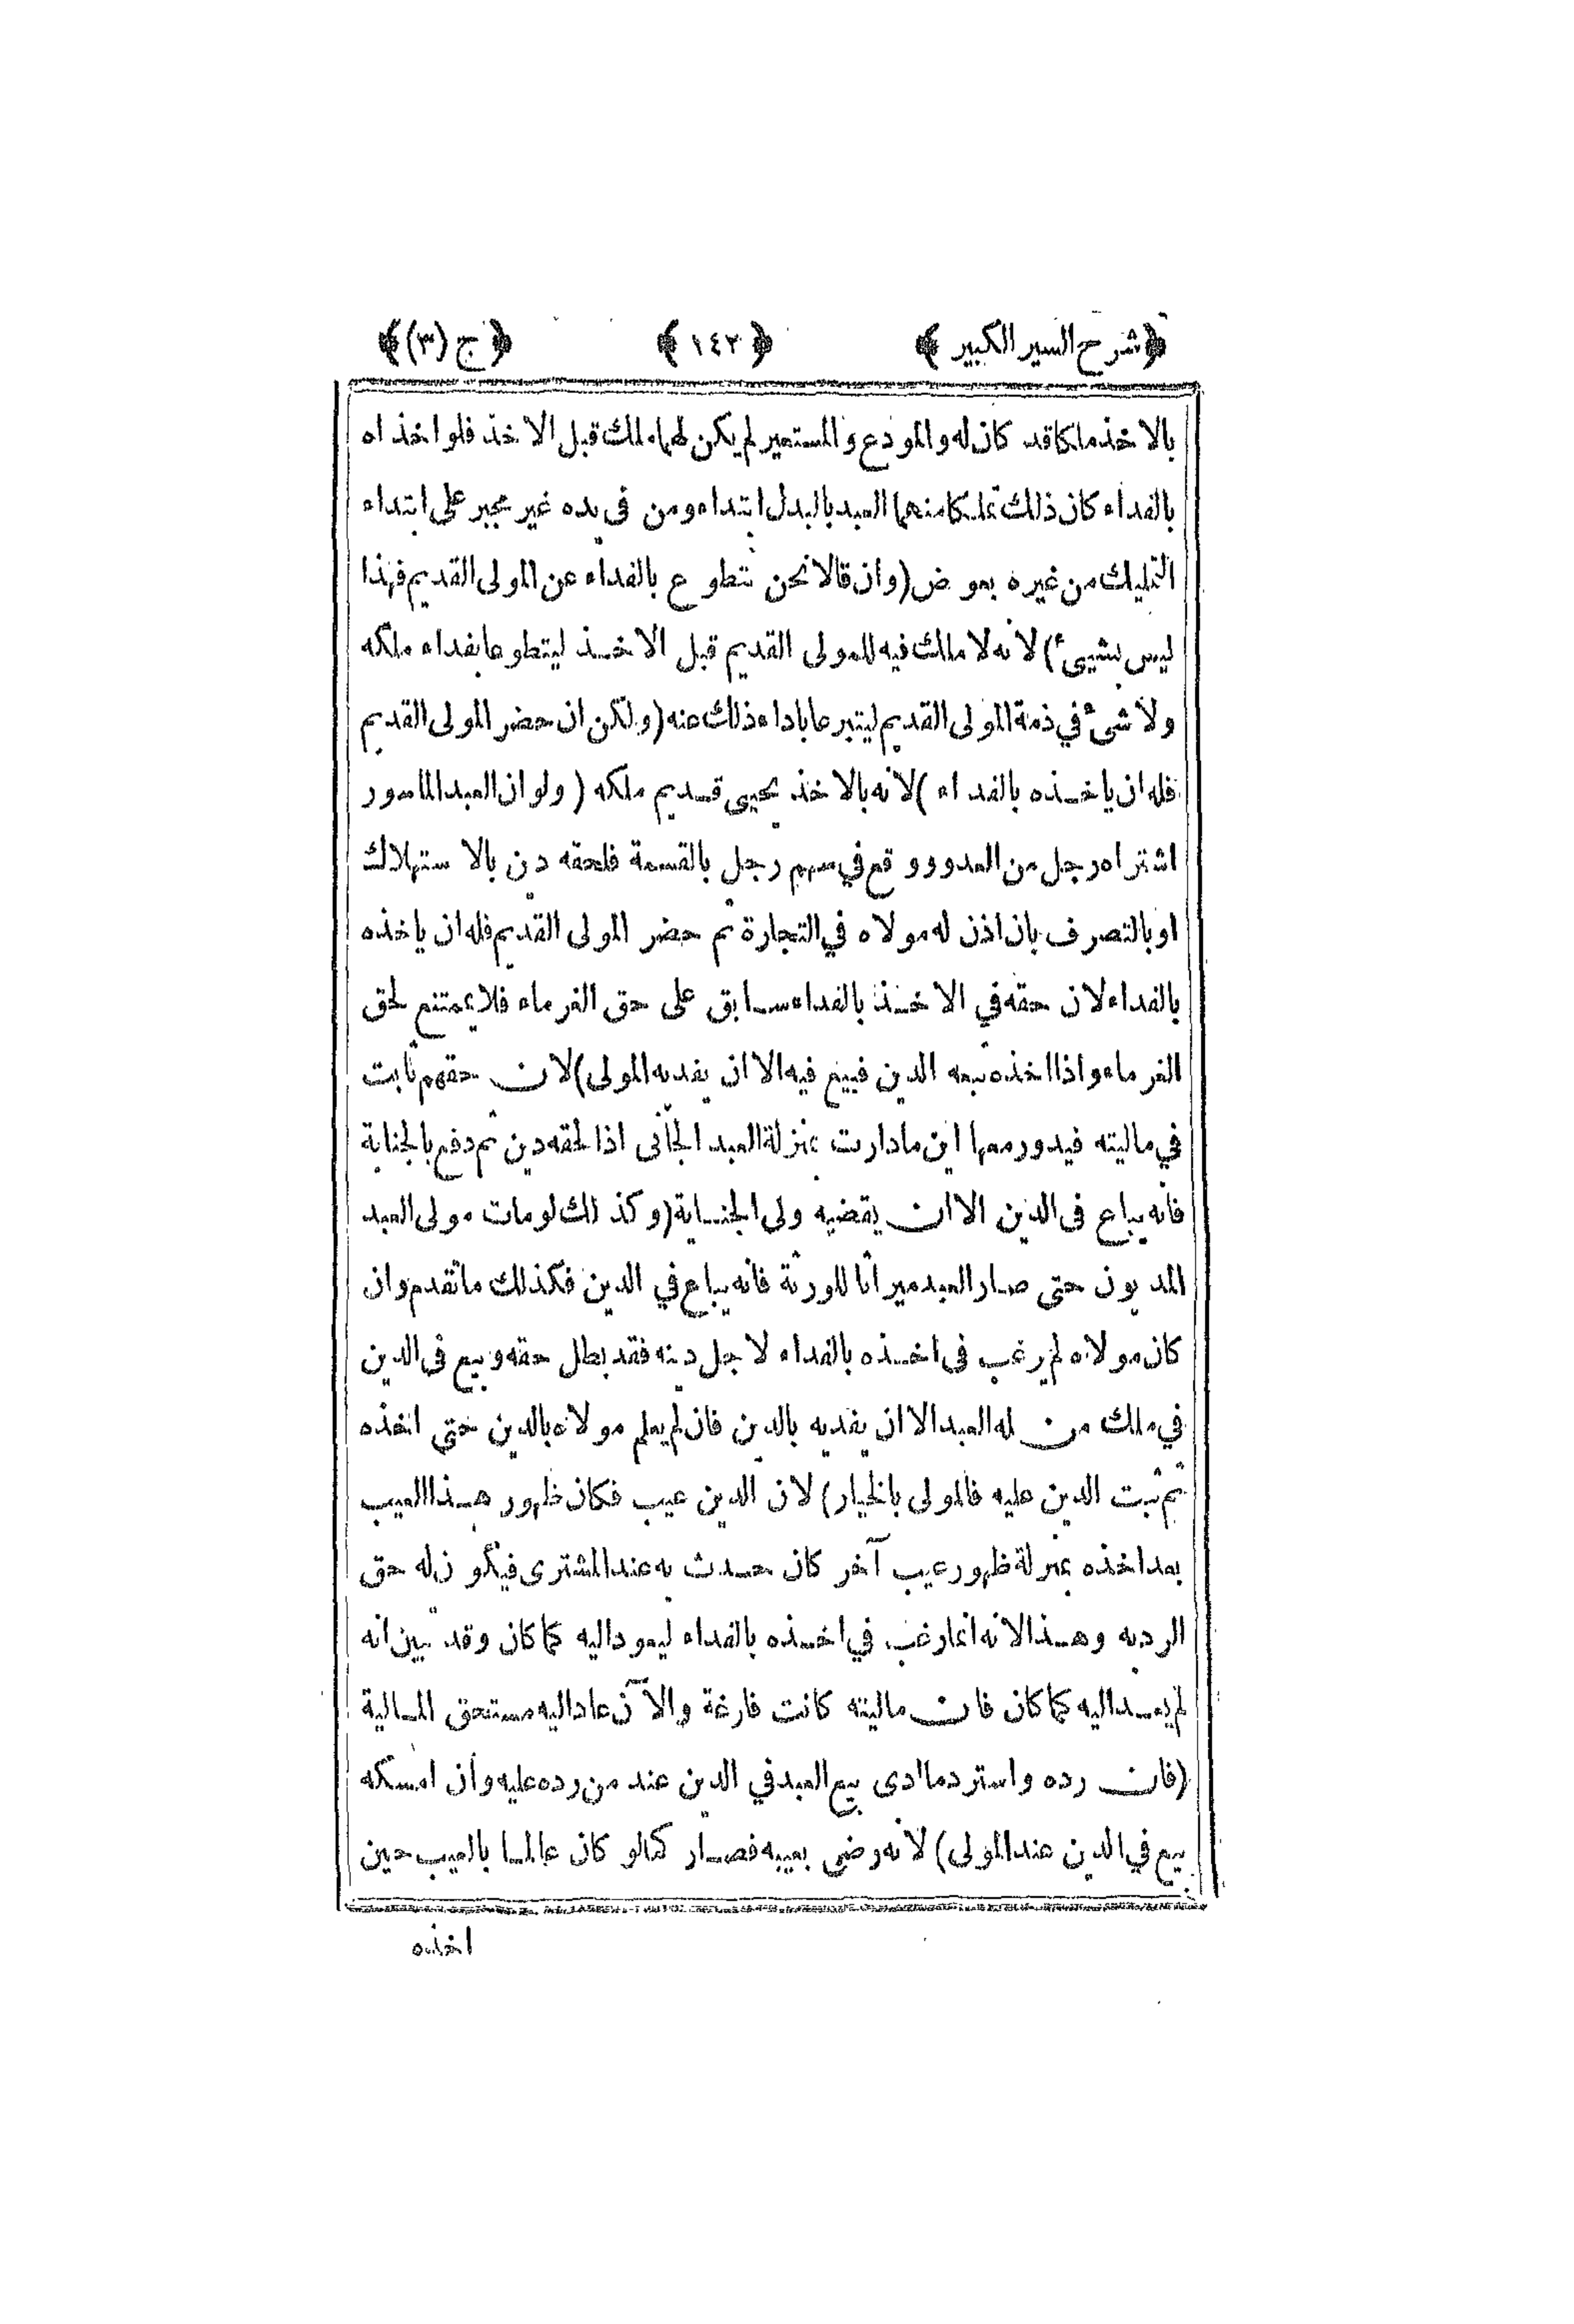 ﴿شرح السير الكبير﴾ ﴿١٤٢﴾ ﴿ج (٣)﴾
بالاخذ ملكا قد كان له والمودع والمستعير لم يكن لهما ملك قبل الاخذ فلو اخذاه
بالفداء كان ذلك تملكا منهما العبد بالبدل ابتداء ومن في يده غير مجبر على ابتداء
التمليك من غيره بعوض (وان قالا نحن نتطوع بالفداء عن المولى القديم فهذا
ليس بشيئ) لانه لا ملك فيه للمولى القديم قبل الاخذ ليتطوعا بفداء ملكه
ولا شئ في ذمة المولى القديم ليتبرعا باداء ذلك عنه (ولكن ان حضر المولى القديم
فله ان ياخذه بالفداء) لانه بالاخذ يحيى قديم ملكه (ولو ان العبد الماسور
اشتراه رجل من العدو ووقع في سهم رجل بالقسمة فلحقه دين بالاستهلاك
او بالتصرف بان اذن له مولاه في التجارة ثم حضر المولى القديم فله ان ياخذه
بالفداء لان حقه في الاخذ بالفداء سابق على حق الغرماء فلا يمتنع لحق
الغرماء واذا اخذه تبعه الدين فبيع فيه الا ان يفديه المولى) لان حقهم ثابت
في ماليته فيدور معها اين ما دارت بمنزلة العبد الجانى اذا لحقه دين ثم دفع بالجناية
فانه يباع في الدين الا ان يقضيه ولى الجناية (وكذلك لو مات مولى العبد
المديون حتى صار العبد ميراثا للورثة فانه يباع في الدين فكذلك ما تقدم وان
كان مولاه لم يرغب في اخذه بالفداء لاجل دينه فقد بطل حقه وبيع في الدين
في ملك من له العبد الا ان يفديه بالدين فان لم يعلم مولاه بالدين حتى اخذه
ثم ثبت الدين عليه فالمولى بالخيار) لان الدين عيب فكان ظهور هذا العيب
بعد اخذه بمنزلة ظهور عيب آخر كان حدث به عند المشترى فيكون له حق
الرد به وهذا لانه انما رغب في اخذه بالفداء ليعود اليه كما كان وقد تبين انه
لم يعد اليه كما كان فان ماليته كانت فارغة والآن عاد اليه مستحق المالية
(فان رده واسترد ما ادى بيع العبد في الدين عند من رده عليه وان امسكه
بيع في الدين عند المولى) لانه رضى بعيبه فصار كما لو كان عالما بالعيب حين
اخذه